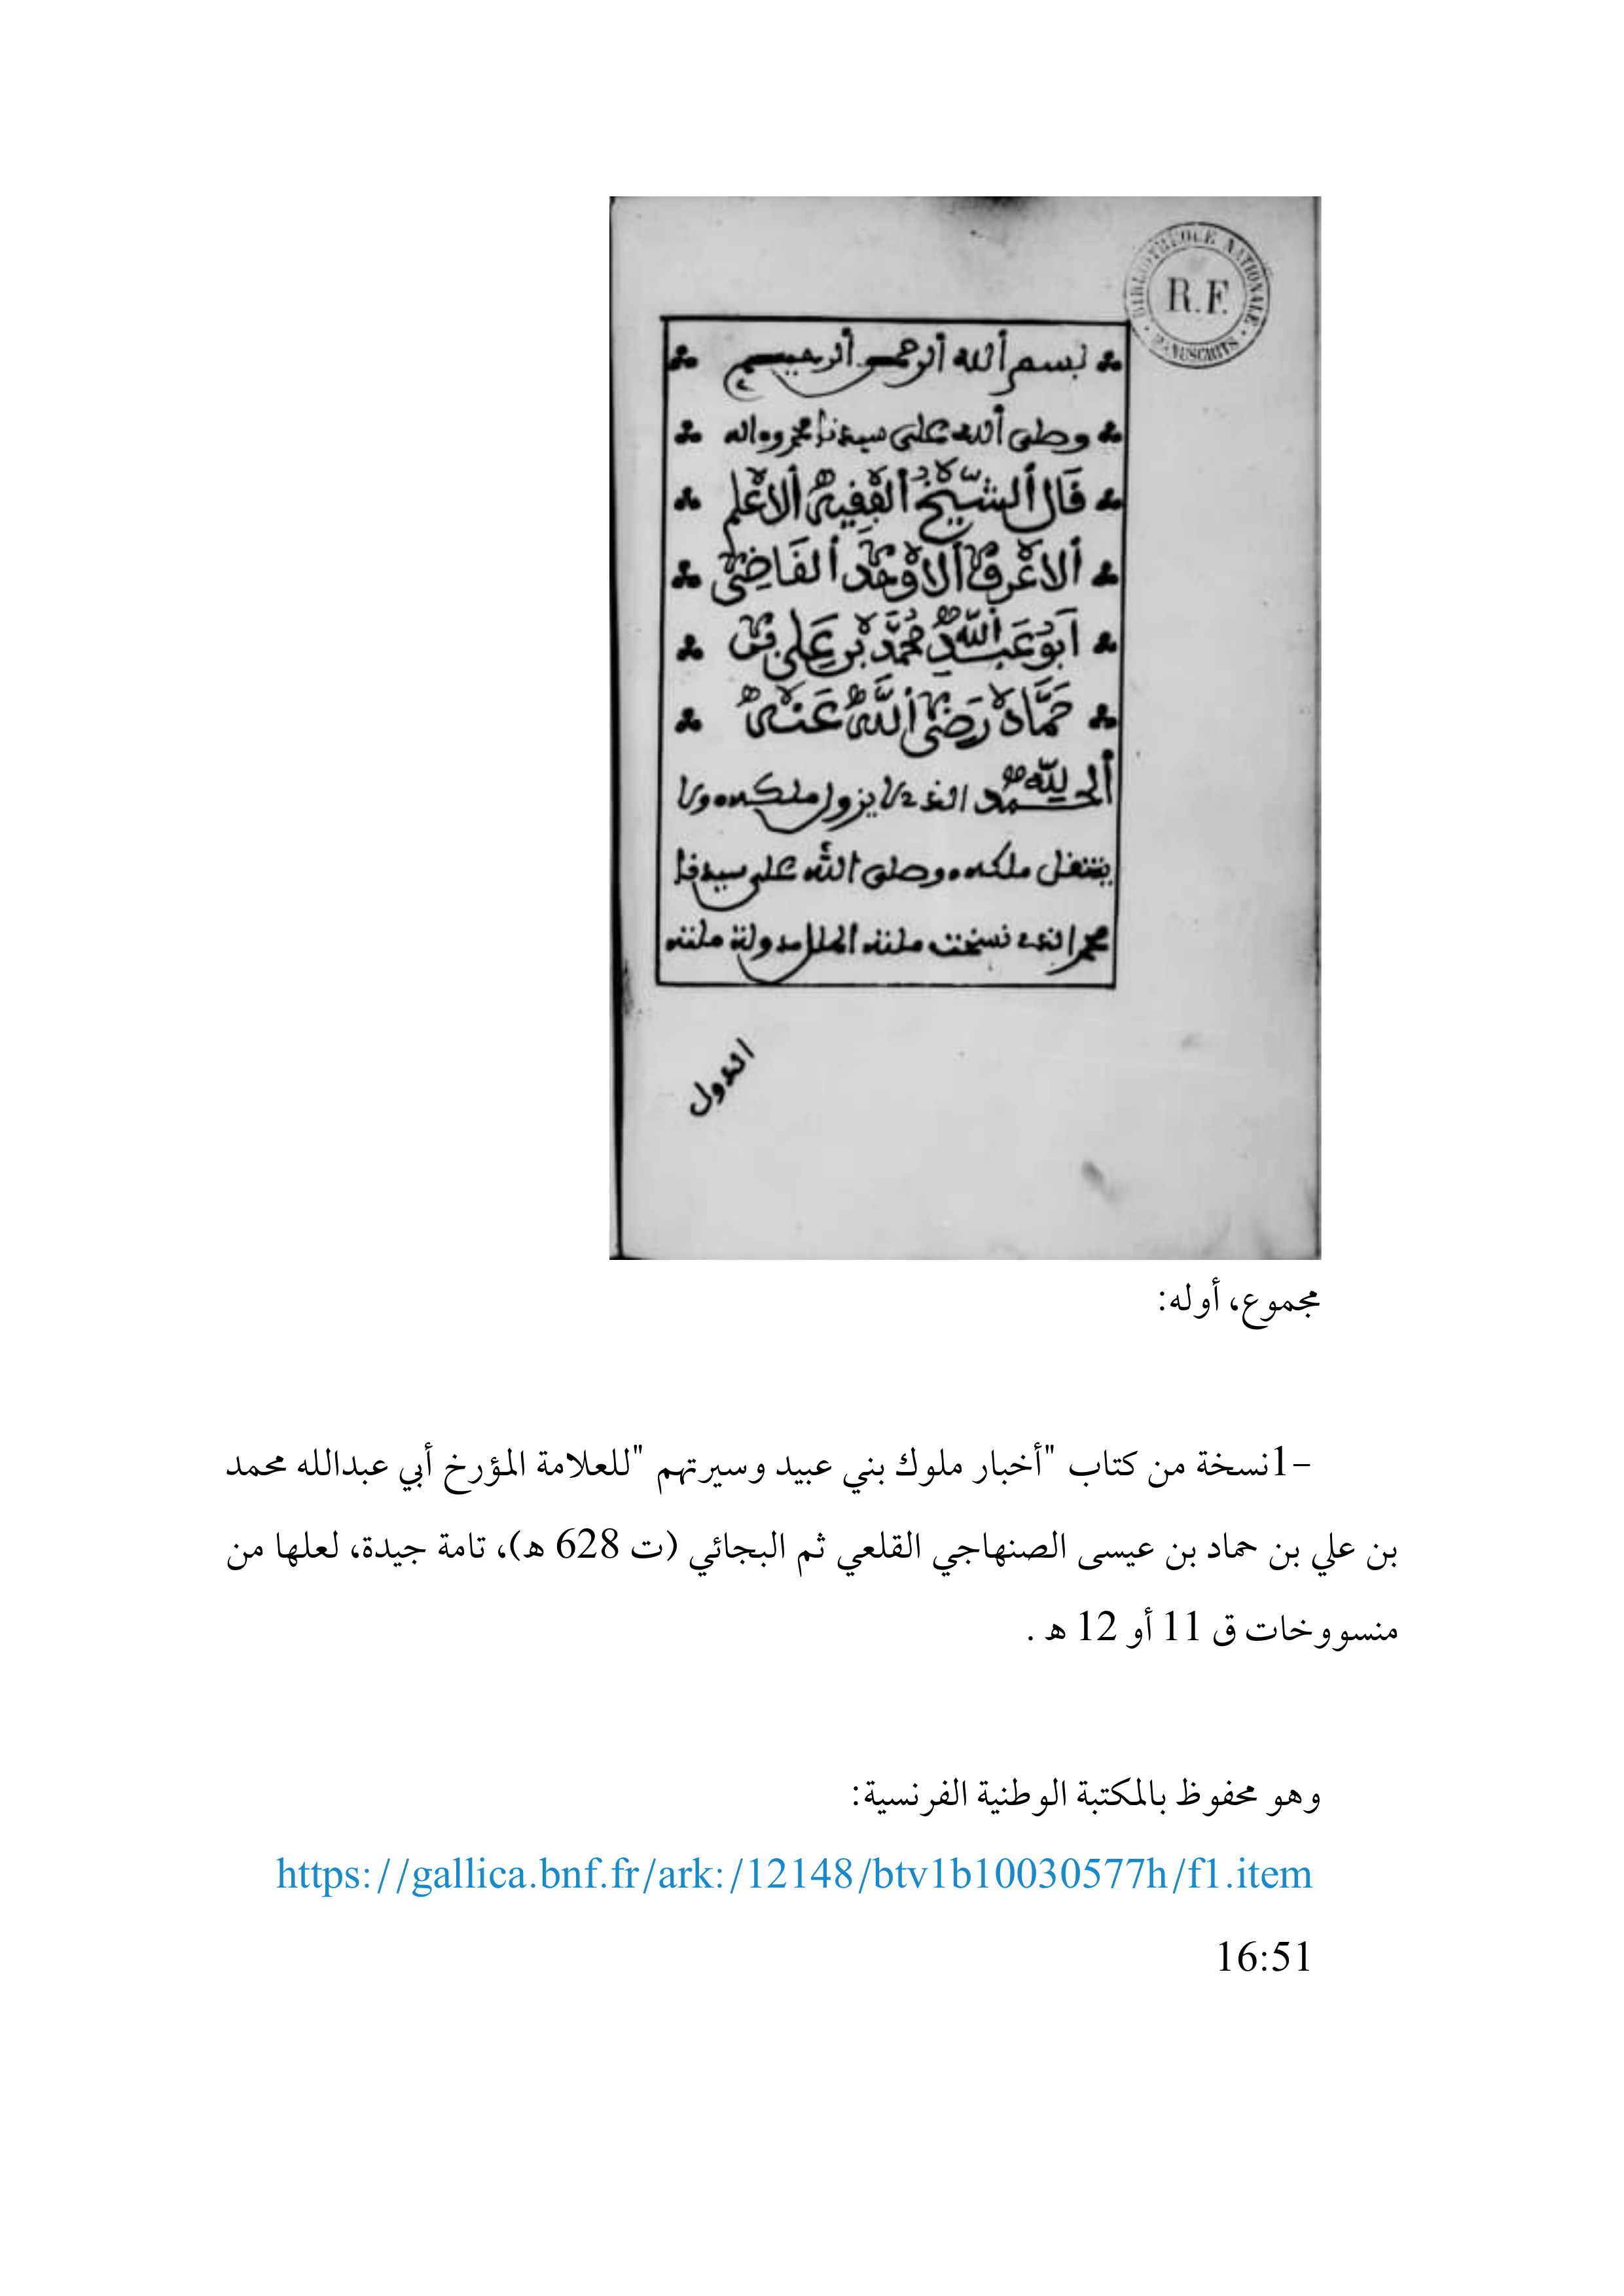 BIBLIOTHÈQUE NATIONALE
R.F.
MANUSCRITS
بسم ألله ألرحمن ألرحيم
وصلى ألله على سيدنا محمد وءاله
قَال ألشّيْخُ ألْفَفِيهُ ألاعْلم
ألاعْرفُ ألاوْحَدُ ألفَاضِى
أبُو عَبْد الله مُحَمَّد بْن عَلِى بْنِ
حَمَّادْ رَضِىَ أللَّهُ عَنْهُ
ألحمد لله الذي لا يزول ملكه ولا
ينتفل ملكه وصلى الله على سيدنا
محمد الذي نسخت ملته الملل ودولة ملته
الدول
مجموع، أوله:
1- نسخة من كتاب "أخبار ملوك بني عبيد وسيرتهم "للعلامة المؤرخ أبي عبدالله محمد
بن علي بن حماد بن عيسى الصنهاجي القلعي ثم البجائي (ت 628 ه)، تامة جيدة، لعلها من
منسووخات ق 11 أو 12 ه .
وهو محفوظ بالمكتبة الوطنية الفرنسية:
https://gallica.bnf.fr/ark:/12148/btv1b10030577h/f1.item
16:51